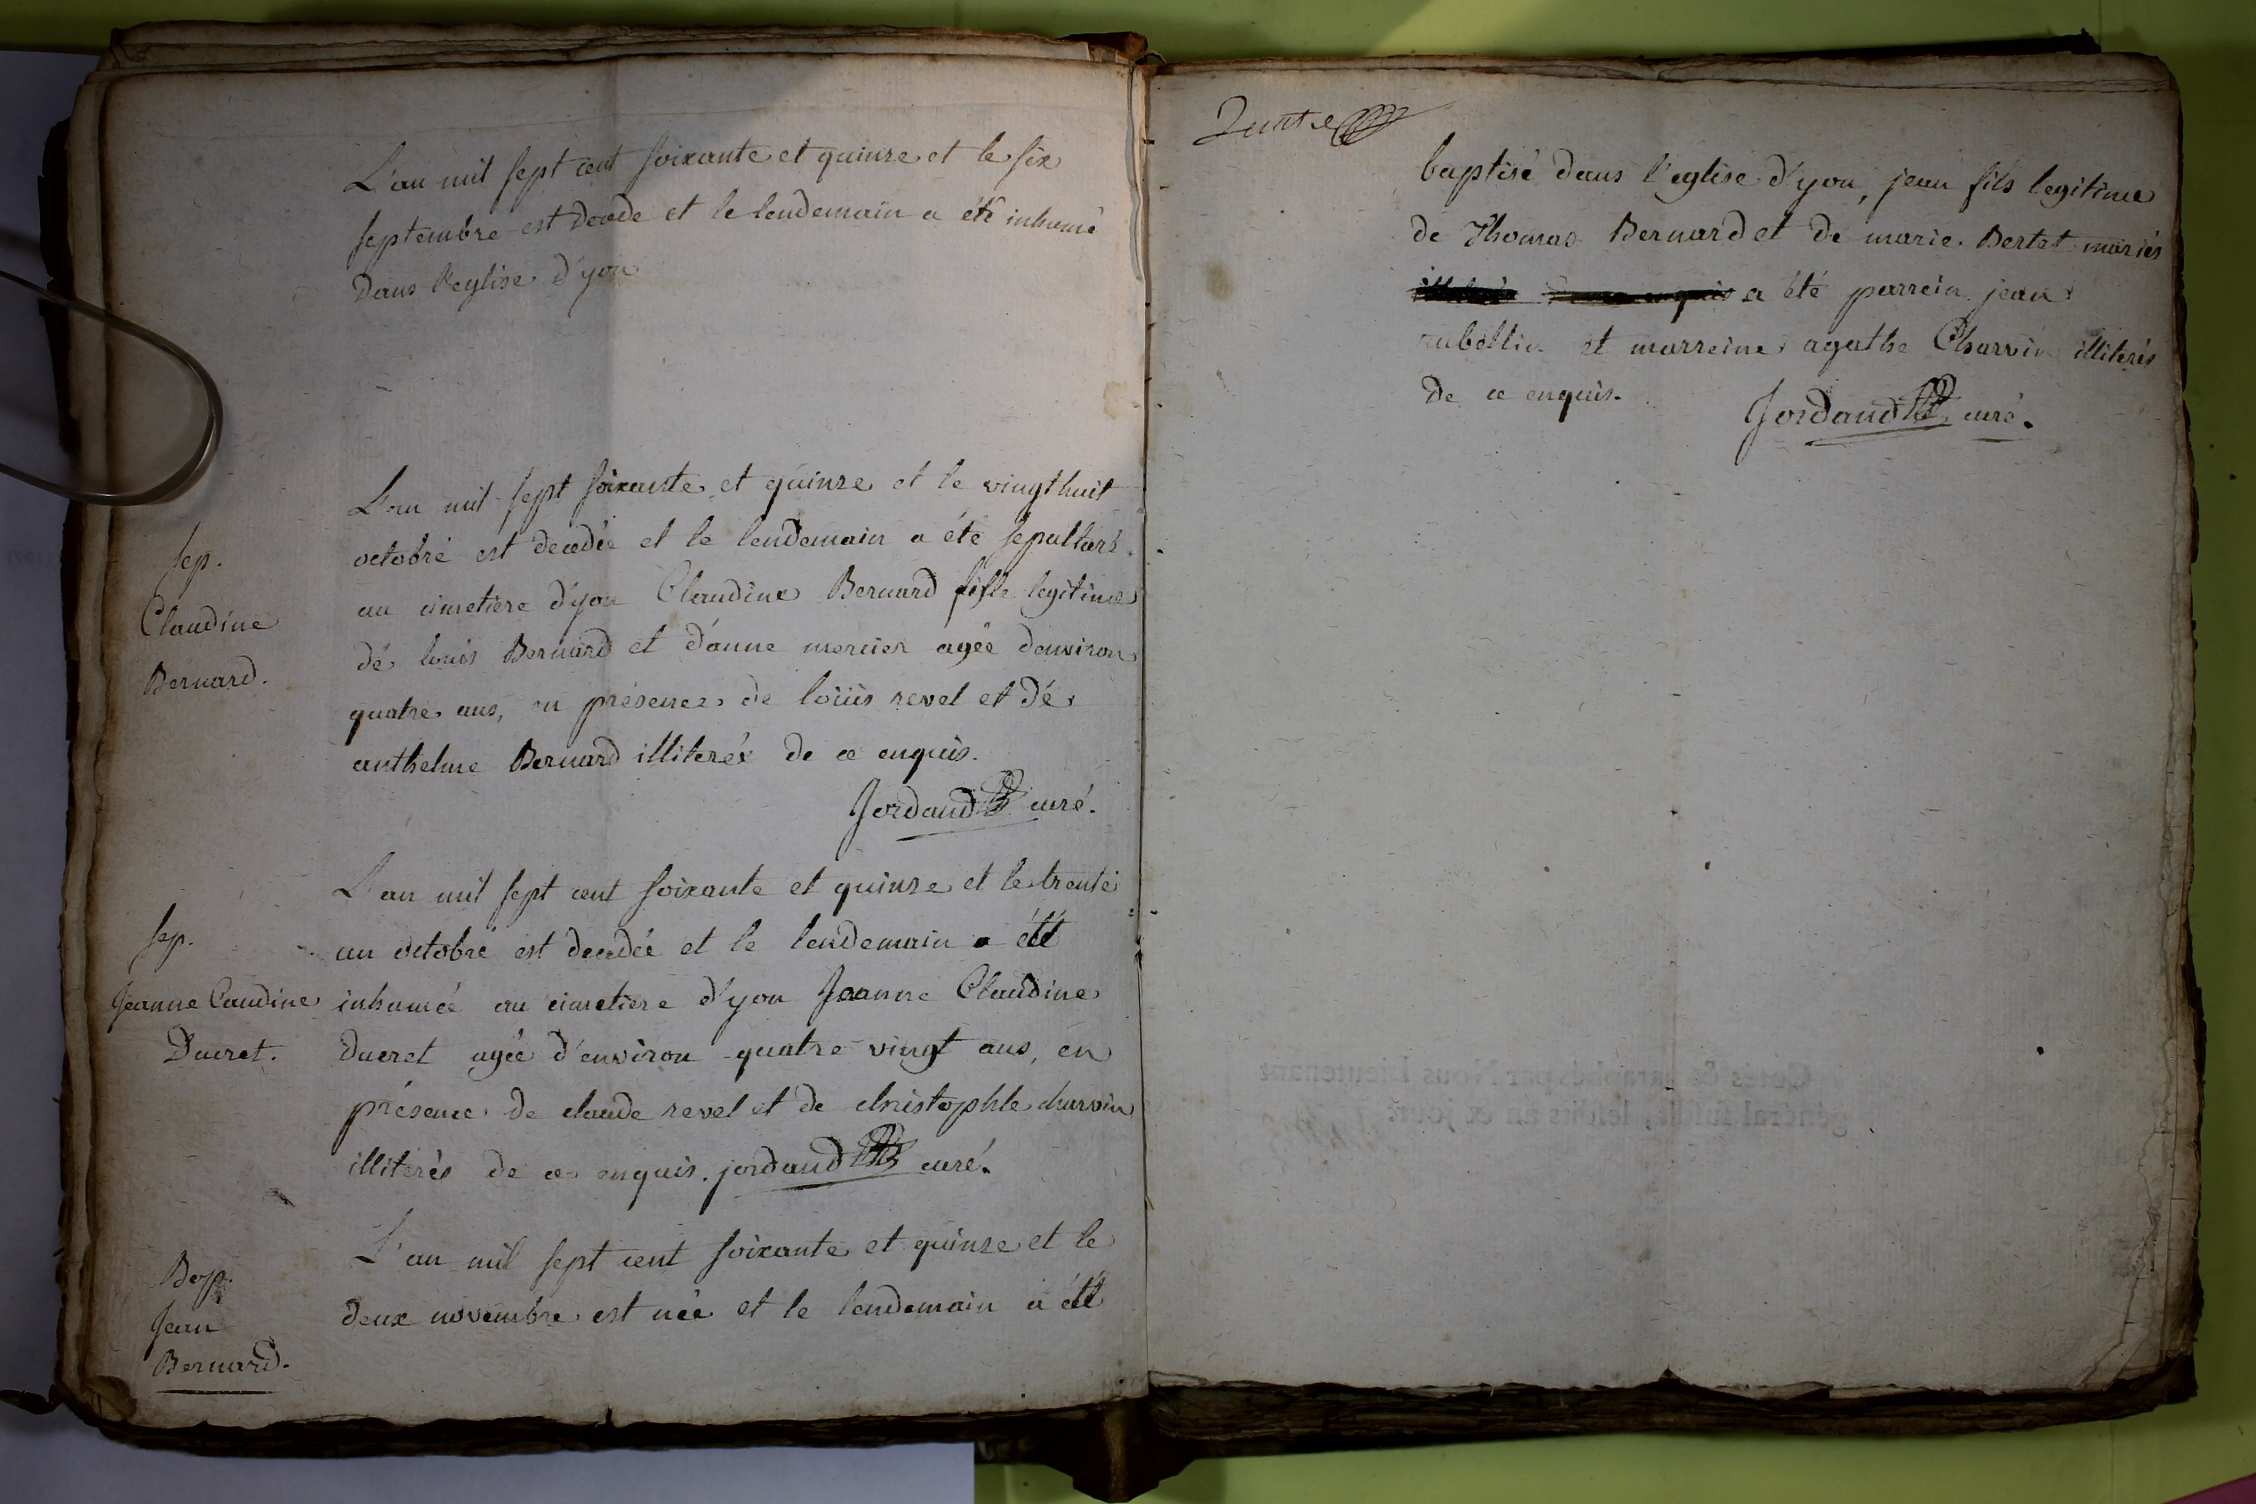 L'an mil sept cent soixante et quinze et le six
septembre est decede et le lendemain a été inhumé
Dans l'eglise d'yon
sep.
Claudine
Bernard.
L'an mil sept soixante et quinze et le vingthuit
octobre est decedée et le lendemain a été sepulturé
au cimetiere d'yon Claudine Bernard fille legitime
dé louis Bernard et d'anne mercier agée d'environ
quatre ans, en présence de louis revel et dé
anthelme Bernard illiterés de ce enquis.
Jordand curé.
sep.
Jeanne Caudine
Ducret.
L'an mil sept cent soixante et quinze et le trente
un octobre est decedée et le lendemain a été
inhumée au cimetiere d'yon Jeanne Claudine
ducret agée d'environ quatre vingt ans, en
présence de claude revel et de christophle charvin
illiterés de ce enquis. jordand curé.
Bap.
Jean
Bernard.
L'an mil sept cent soixante et quinze et le
deux novembre est née et le lendemain a été
baptisé dans l'eglise d'yon, jean fils legitime
de Thomas Bernard et de marie Bertet mariés
a été parrein jean
et marreine agathe Charvin illiterés
de ce enquis.
Jordand curé.
Cotés & paraphés par Nous Lieutenant
général susdit, lesdits an & jour.